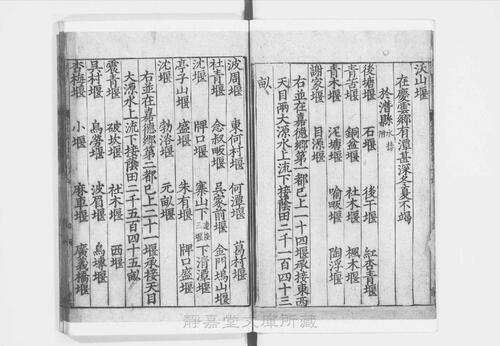 沃山堰
在慶雲鄉有潭甚深冬夏不竭
於潛縣水錄附
後塘堰 石堰 後干堰 紅杏青堰
青苦堰 銅盆堰 社木堰 楓木堰
青木堰 泥塘堰 喻畈堰 陶浮堰
謝家堰 目源堰
右並在嘉德鄉第一都已上一十四堰承接東西
天目兩大源水上流下接蔭田二千二百四十三
畝
波周堰 東何村堰 何潭堰 葛村堰
社青堰 念叔畈堰 吳家前堰 金門塢山堰
沈堰 牌口堰 寨山下 下清潭堰
亭子山堰 盛堰 朱有堰 牌口盛堰
沈堰 勃洛堰 元畝堰
右並在嘉德鄉第二都已上二十一堰承接天目
大源水上流下接蔭田二千五百四十五畝
震青堰 破坎堰 社木堰 西堰
吳村堰 烏勞堰 波眉堰 烏墟堰
杏梅堰 小堰 麻車堰 廣義橋堰
靜嘉堂文庫所藏